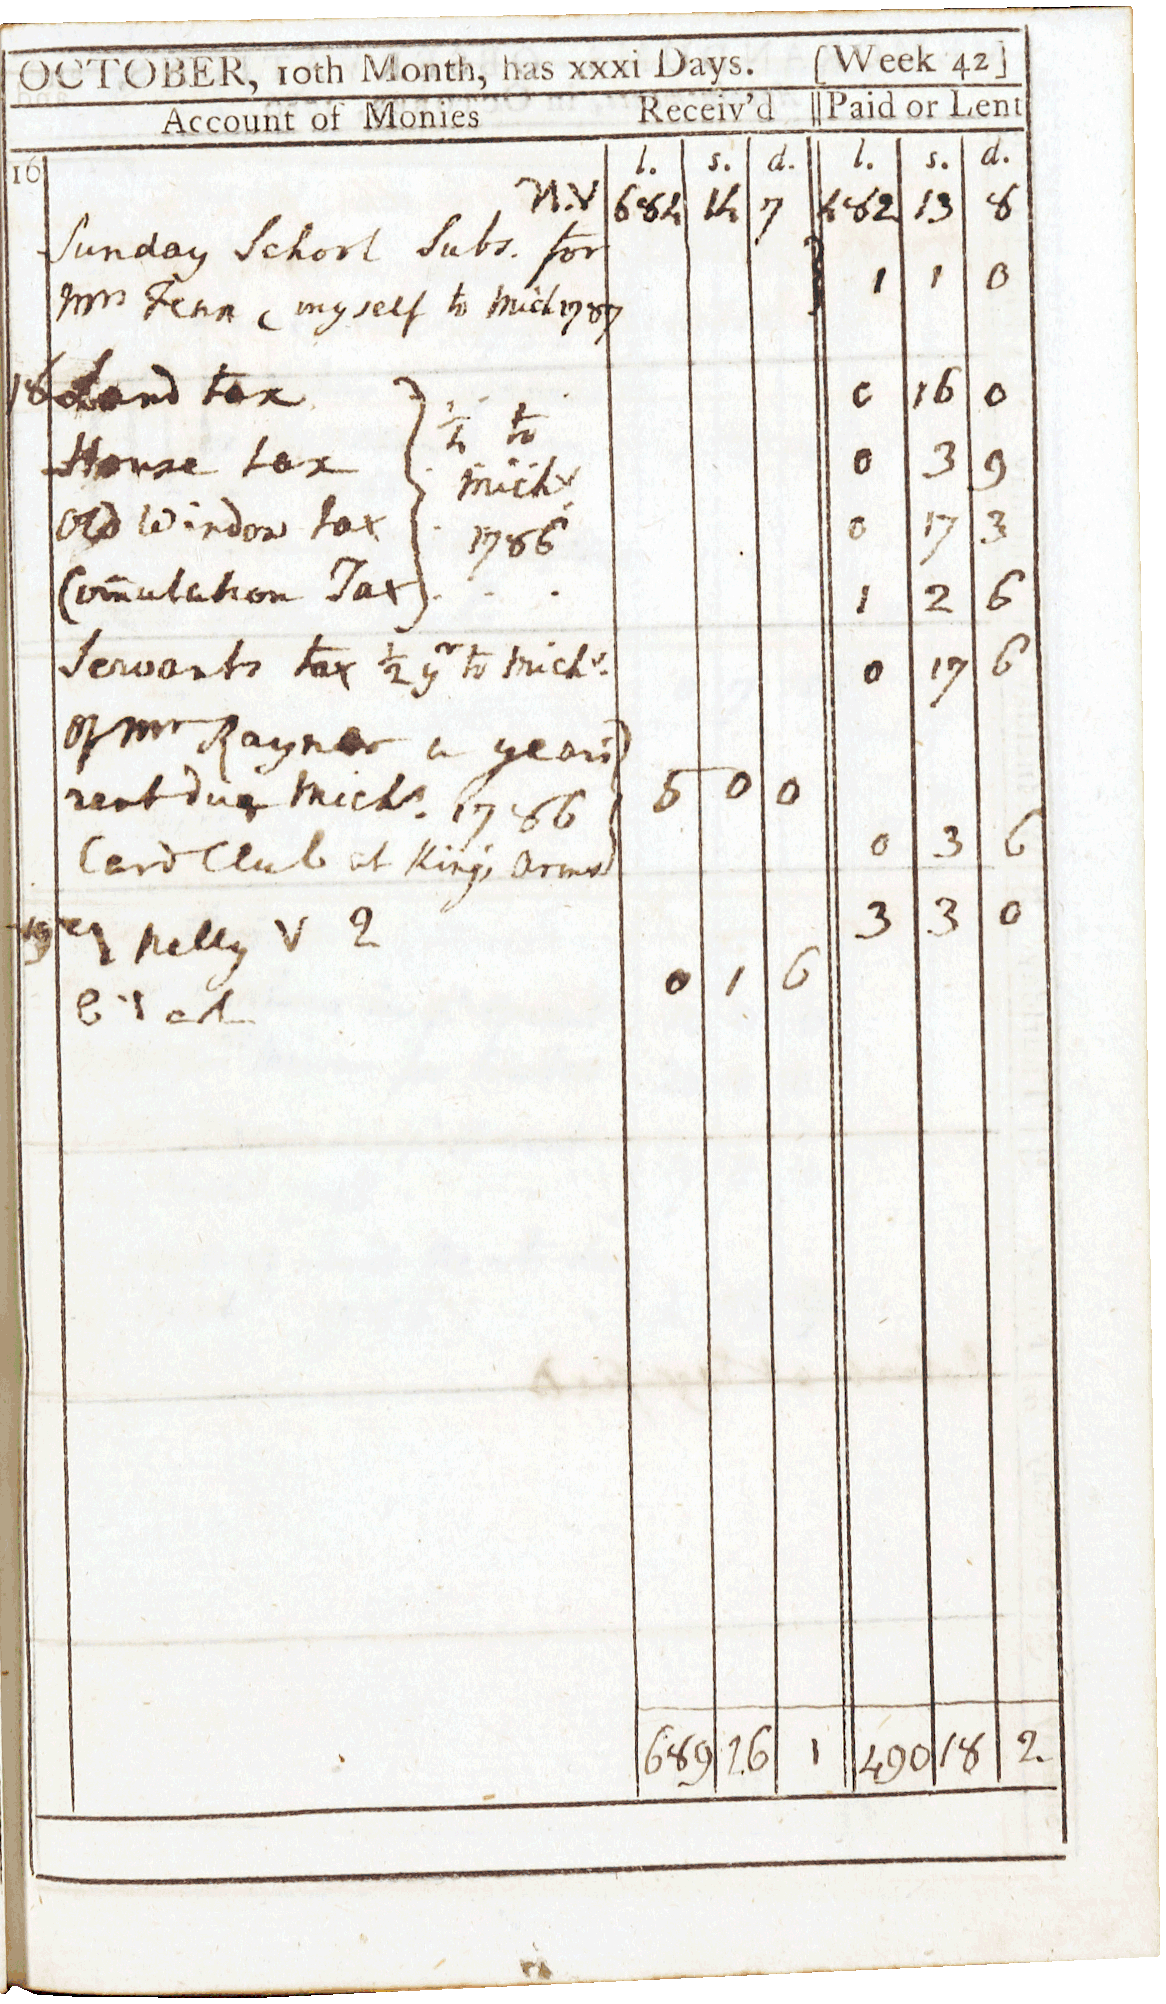 OCTOBER, 10th Month, has xxxi Days. [Week 42]
Account of Monies Receiv'd Paid or Lent
16 l. s. d. l. s. d.
684 14 7 482 13 8
Sunday School Subs. for
Mrs Fenn & myself to Mich 1787 1 1 0
18 Land tax 1/2 to 0 16 0
House tax Michs 0 3 9
Old Window tax 1786 0 17 3
Com̄utation Tax 1 2 6
Servants tax 1/2 yr to Michs. 0 17 6
Of Mr Rayner a years
rent due Michs. 1786 5 0 0
Card Club at Kings Arms 0 3 6
19 Nelly V 2 3 3 0
0 1 6
689 16 1 490 18 2